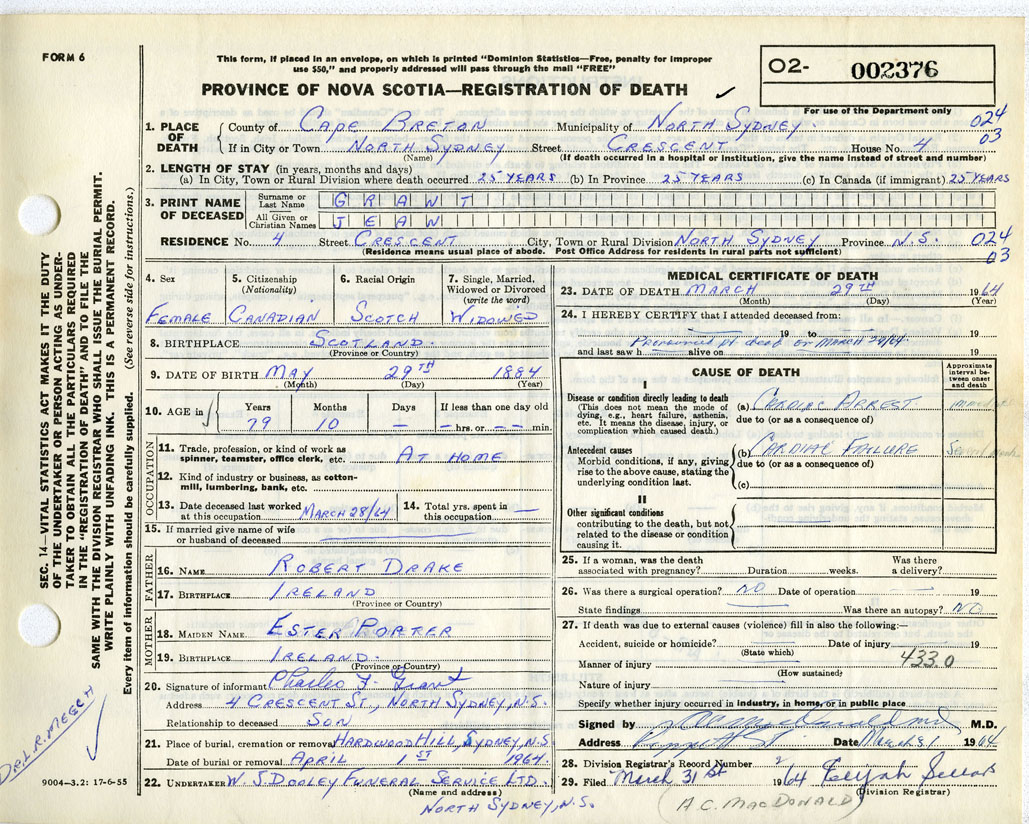 FORM 6
This form, if placed in an envelope, on which is printed "Dominion Statistics—Free, penalty for improper
use $50," and properly addressed will pass through the mail "FREE"
PROVINCE OF NOVA SCOTIA—REGISTRATION OF DEATH ✓
O2- 002376
For use of the Department only
024
03
1. PLACE OF DEATH
County of CAPE BRETON Municipality of NORTH SYDNEY
If in City or Town NORTH SYDNEY Street CRESCENT House No. 4
(Name) (If death occurred in a hospital or institution, give the name instead of street and number)
2. LENGTH OF STAY (in years, months and days)
(a) In City, Town or Rural Division where death occurred 25 YEARS (b) In Province 25 YEARS (c) In Canada (if immigrant) 25 YEARS
3. PRINT NAME OF DECEASED
Surname or Last Name GRANT
All Given or Christian Names JEAN
RESIDENCE No. 4 Street CRESCENT City, Town or Rural Division NORTH SYDNEY Province N.S. 024
(Residence means usual place of abode. Post Office Address for residents in rural parts not sufficient) 03
4. Sex
FEMALE
5. Citizenship
(Nationality)
CANADIAN
6. Racial Origin
SCOTCH
7. Single, Married,
Widowed or Divorced
(write the word)
WIDOWED
8. BIRTHPLACE SCOTLAND
(Province or Country)
9. DATE OF BIRTH MAY 29TH 1884
(Month) (Day) (Year)
10. AGE in
Years Months Days If less than one day old
79 10 — — hrs. or — — min.
OCCUPATION
11. Trade, profession, or kind of work as
spinner, teamster, office clerk, etc. AT HOME
12. Kind of industry or business, as cotton-
mill, lumbering, bank, etc.
13. Date deceased last worked
at this occupation MARCH 28/64
14. Total yrs. spent in
this occupation —
15. If married give name of wife
or husband of deceased
FATHER
16. NAME ROBERT DRAKE
17. BIRTHPLACE IRELAND
(Province or Country)
MOTHER
18. MAIDEN NAME ESTER PORTER
19. BIRTHPLACE IRELAND.
(Province or Country)
20. Signature of informant Charles F. Grant
Address 4 CRESCENT ST., NORTH SYDNEY, N.S.
Relationship to deceased SON
21. Place of burial, cremation or removal HARDWOOD HILL, SYDNEY, N.S.
Date of burial or removal APRIL 1ST 1964
22. UNDERTAKER W. J. DOOLEY FUNERAL SERVICE LTD.
(Name and address)
NORTH SYDNEY, N.S.
MEDICAL CERTIFICATE OF DEATH
23. DATE OF DEATH MARCH 29TH 1964
(Month) (Day) (Year)
24. I HEREBY CERTIFY that I attended deceased from:
19 to 19
Pronounced pt dead on MARCH 29/64
and last saw h alive on 19
CAUSE OF DEATH
Approximate
interval be-
tween onset
and death
I
Disease or condition directly leading to death
(This does not mean the mode of
dying, e.g., heart failure, asthenia,
etc. It means the disease, injury, or
complication which caused death.)
(a) CARDIAC ARREST
due to (or as a consequence of)
Antecedent causes
Morbid conditions, if any, giving
rise to the above cause, stating the
underlying condition last.
(b) CARDIAC FAILURE
due to (or as a consequence of)
(c)
II
Other significant conditions
contributing to the death, but not
related to the disease or condition
causing it.
25. If a woman, was the death
associated with pregnancy? Duration weeks. Was there
a delivery?
26. Was there a surgical operation? NO Date of operation 19
State findings Was there an autopsy? NO
27. If death was due to external causes (violence) fill in also the following:—
Accident, suicide or homicide? Date of injury 19
(State which)
4330
Manner of injury
(How sustained)
Nature of injury
Specify whether injury occurred in industry, in home, or in public place
Signed by M.D.
Address Date March 31 1964
28. Division Registrar's Record Number
29. Filed March 31st 1964
(Division Registrar)
(A.C. MACDONALD)
SEC. 14—VITAL STATISTICS ACT MAKES IT THE DUTY
OF THE UNDERTAKER OR PERSON ACTING AS UNDER-
TAKER TO OBTAIN ALL THE PARTICULARS REQUIRED
IN THE "REGISTRATION OF DEATH" AND TO FILE THE
SAME WITH THE DIVISION REGISTRAR WHO SHALL ISSUE THE BURIAL PERMIT.
WRITE PLAINLY WITH UNFADING INK. THIS IS A PERMANENT RECORD.
Every item of information should be carefully supplied. (See reverse side for instructions.)
DR. L. R. MEECH ✓
9004-3.2: 17-6-55